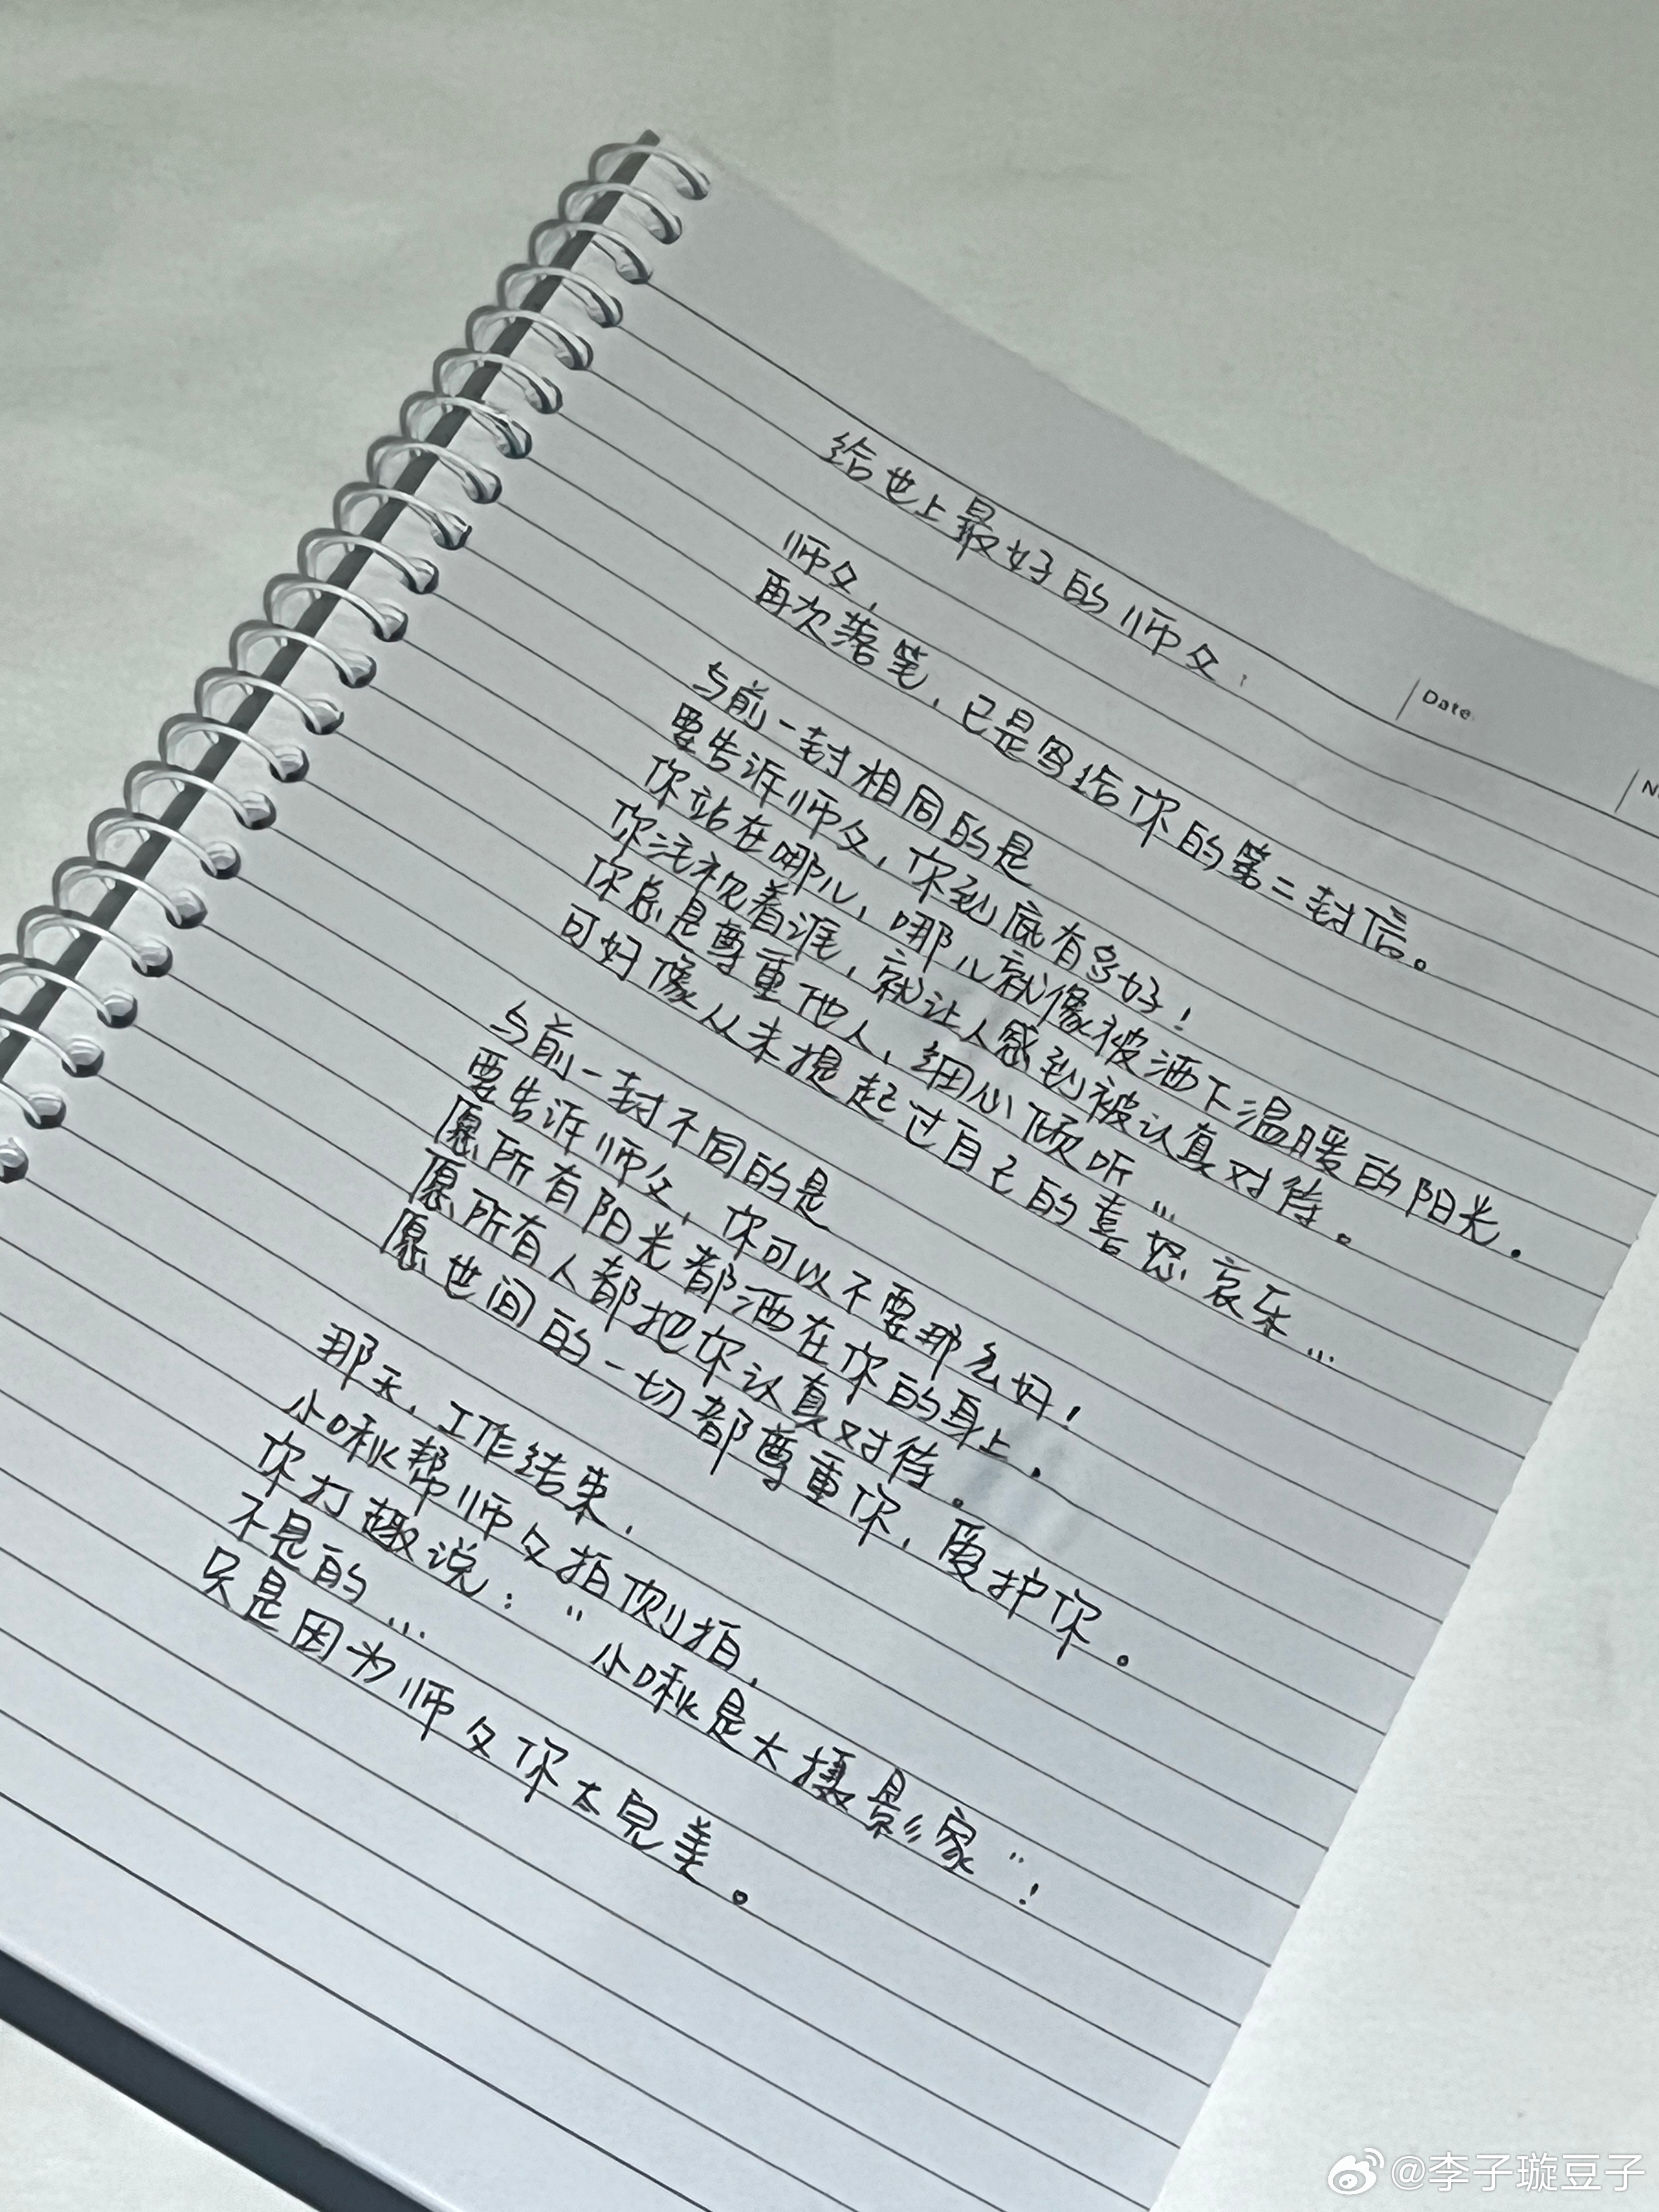 Date
给世上最好的师父:
师父,
再次落笔,已是写给你的第二封信。
与前一封相同的是
要告诉师父,你到底有多好!
你站在哪儿,哪儿就像被洒下温暖的阳光.
你注视着谁,就让人感到被认真对待。
你总是尊重他人,细心倾听...
可好像从未提起过自己的喜怒哀乐...
与前一封不同的是
要告诉师父,你可以不要那么好!
愿所有阳光都洒在你的身上.
愿所有人都把你认真对待。
愿世间的一切都尊重你,爱护你。
那天,工作结束,
小啾帮师父拍侧拍,
你打趣说:“小啾是大摄影家”!
不是的...
只是因为师父你太完美。
@李子璇豆子